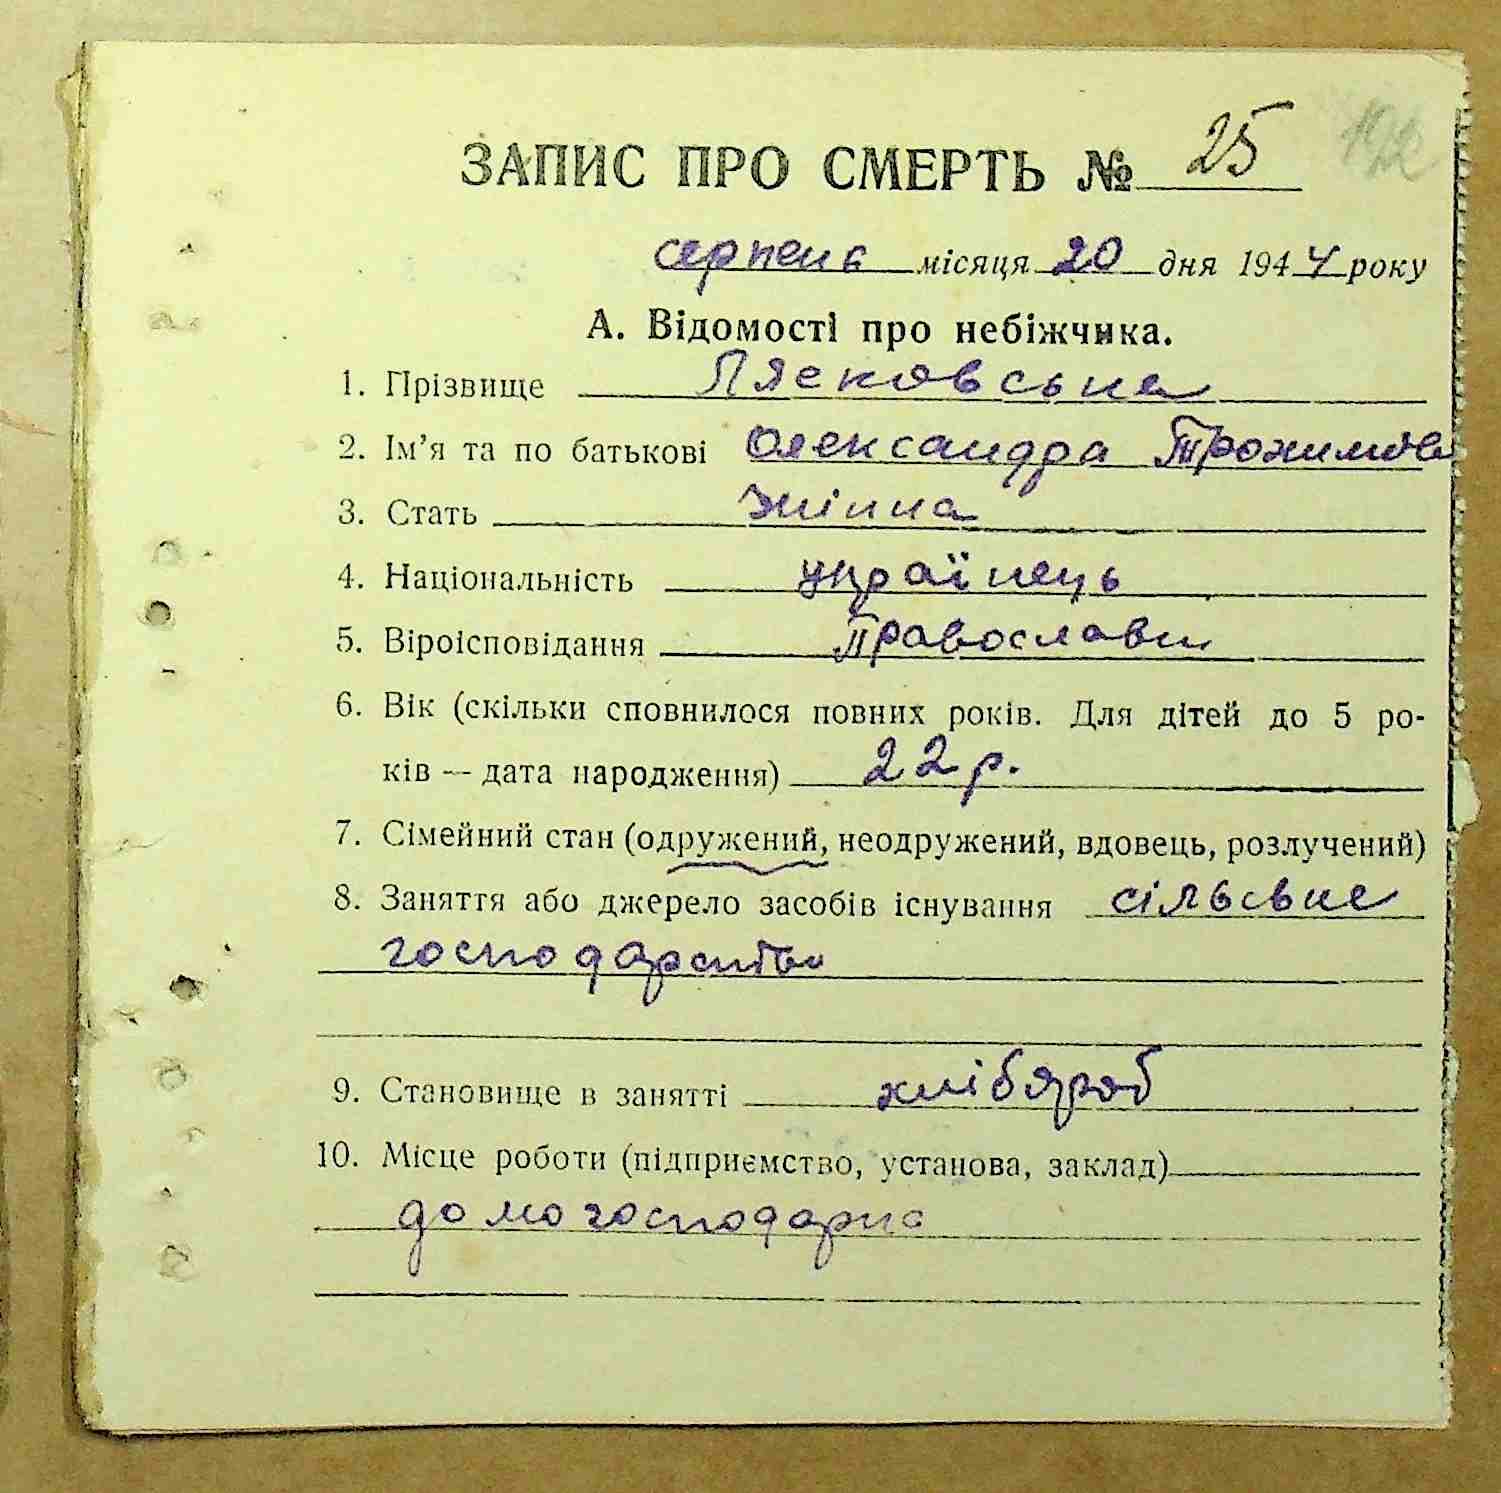 ЗАПИС ПРО СМЕРТЬ № 25 192
серпень місяця 20 дня 1944 року
А. Відомості про небіжчика.
1. Прізвище Лясковська
2. Ім'я та по батькові Олександра Трохимов
3. Стать жінка
4. Національність українець
5. Віроісповідання православн
6. Вік (скільки сповнилося повних років. Для дітей до 5 ро-
ків — дата народження) 22 р.
7. Сімейний стан (одружений, неодружений, вдовець, розлучений)
8. Заняття або джерело засобів існування сільське
господарство
9. Становище в занятті хлібороб
10. Місце роботи (підприємство, установа, заклад)
домогосподарка